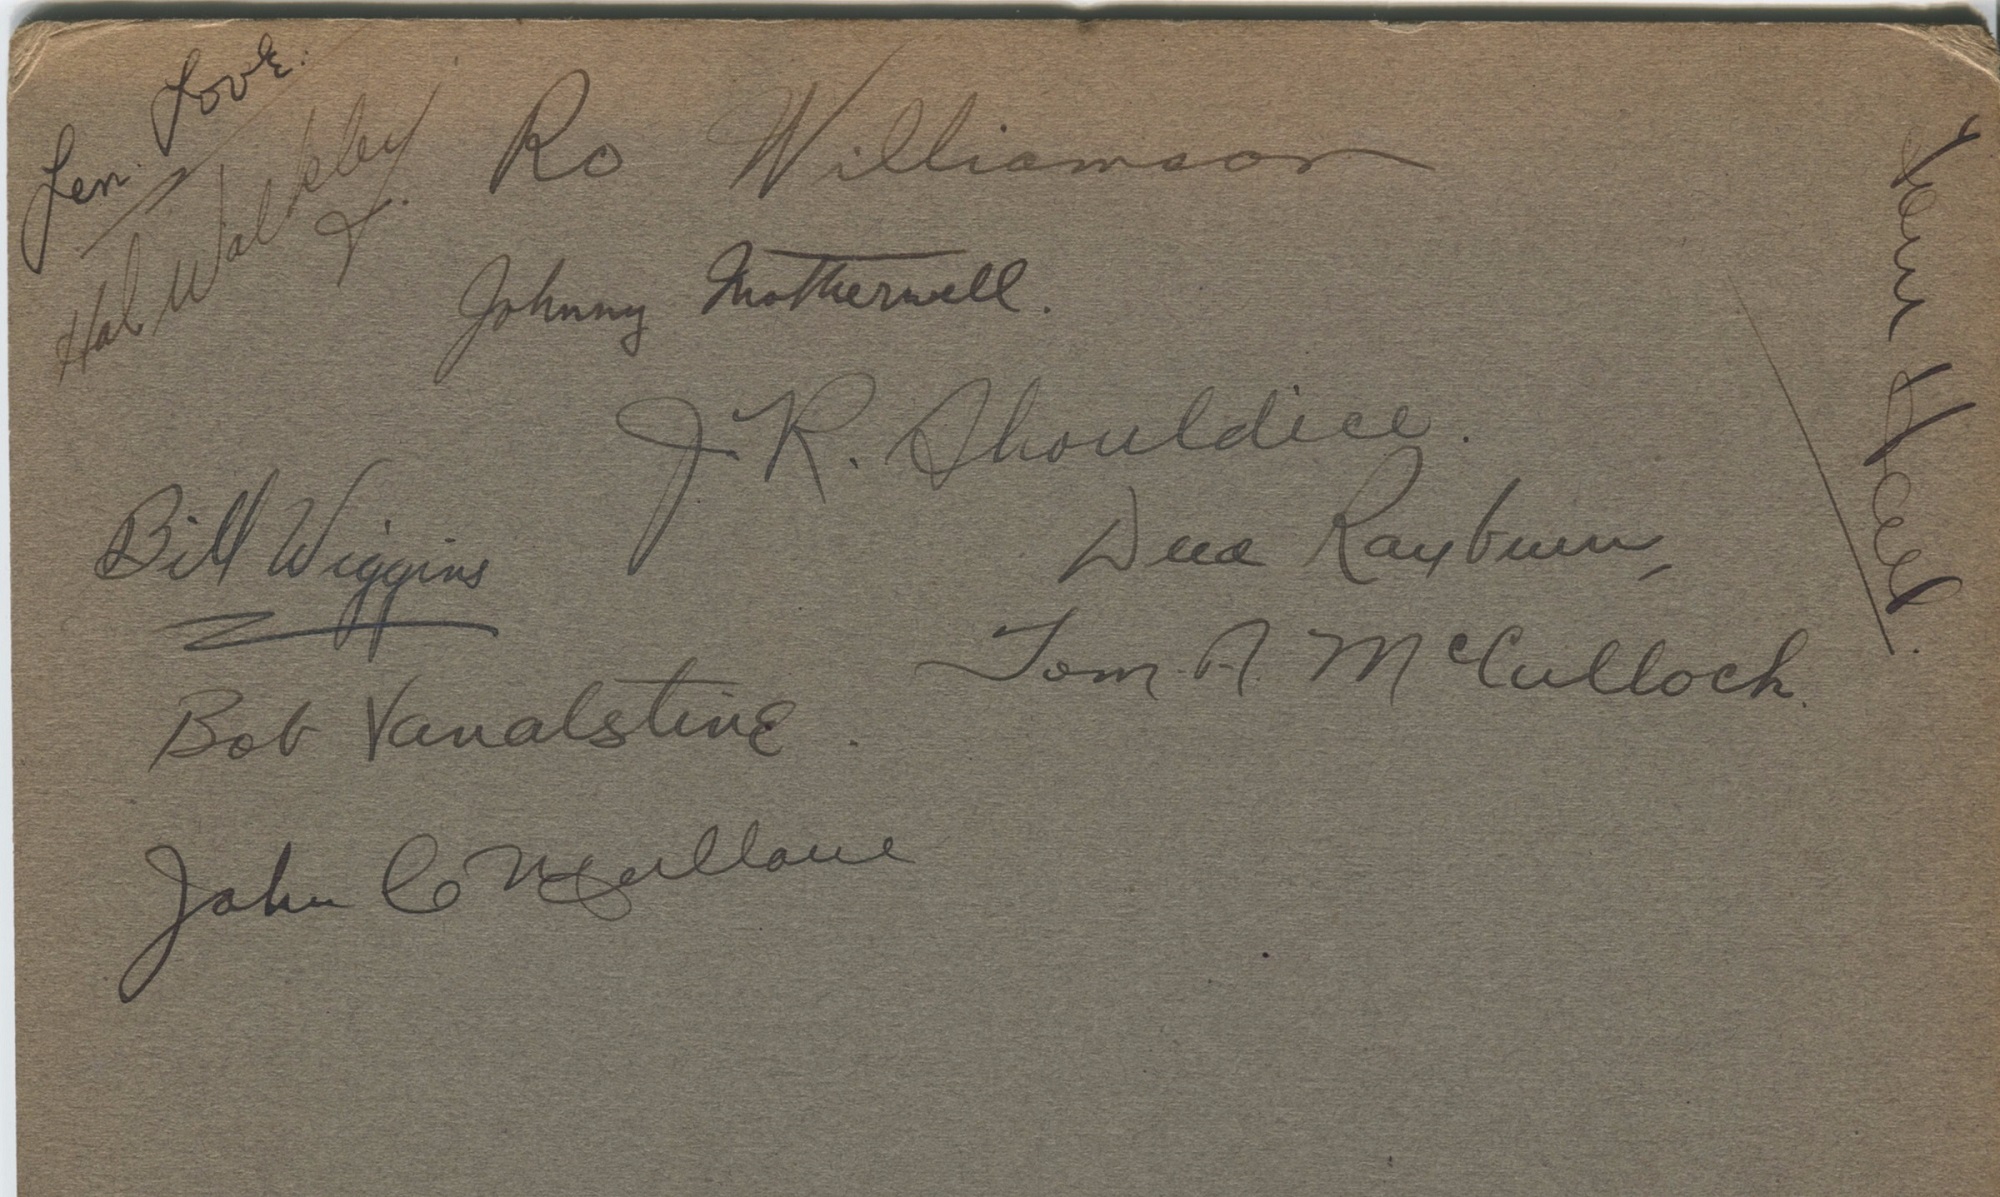 Len. Love.
Hal Walkley
Ro Williamson
Johnny Motherwell.
J. R. Shouldice.
Bill Wiggins
Rayburn,
Tom. A. McCulloch.
Bob Vanalstine.
John C